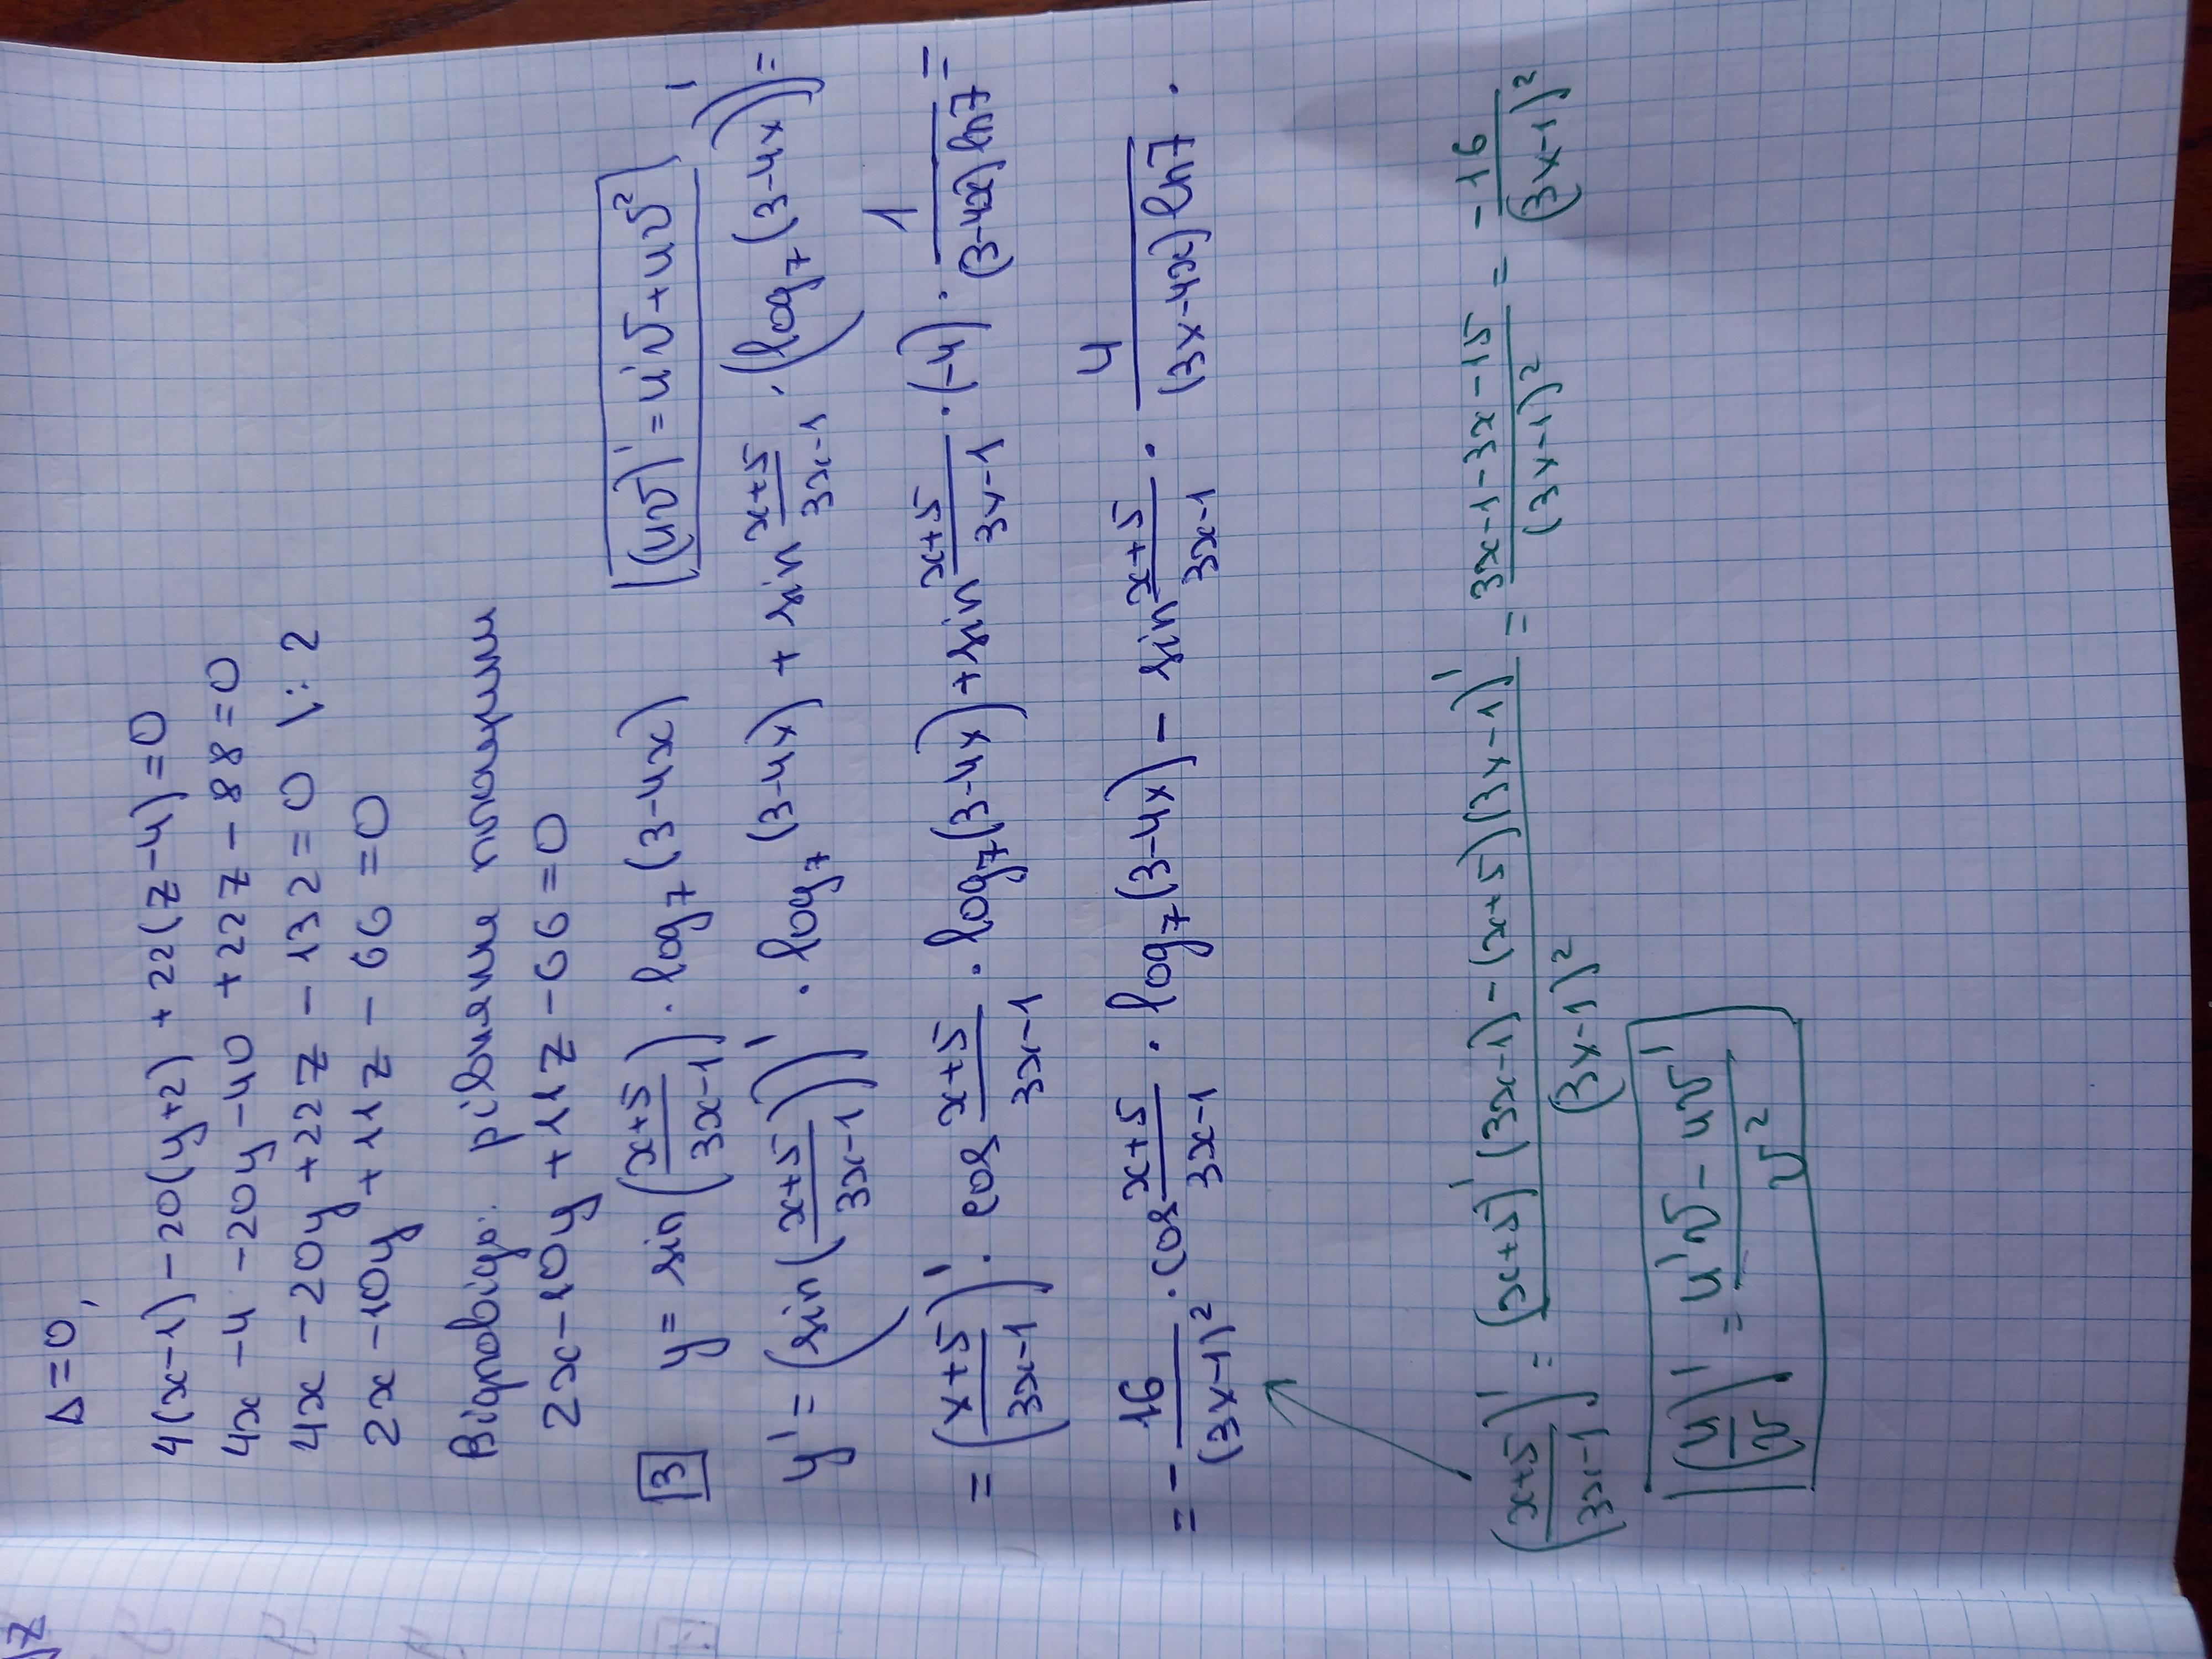 Δ=0,
4(x-1)-20(y+2)+22(z-4)=0
4x-4-20y-40+22z-88=0
4x-20y+22z-132=0 |:2
2x-10y+11z-66=0
Відповідь: рівняння площини
2x-10y+11z-66=0
(uv)' = u'v+uv'
3 y = sin((x+5)/(3x-1)) · log₇(3-4x)
y' = (sin((x+5)/(3x-1)))' · log₇(3-4x) + sin (x+5)/(3x-1) · (log₇(3-4x))' =
= ((x+5)/(3x-1))' · cos (x+5)/(3x-1) · log₇(3-4x) + sin (x+5)/(3x-1) · (-4) · 1/((3-4x) ln7 =
= - 16/(3x-1)² · cos (x+5)/(3x-1) · log₇(3-4x) - sin (x+5)/(3x-1) · 4/((3x-4x) ln7 .
((x+5)/(3x-1))' = ((x+5)'(3x-1)-(x+5)(3x-1)')/(3x-1)² = (3x-1-3x-15)/(3x-1)² = -16/(3x-1)²
(u/v)' = (u'v-uv')/v²